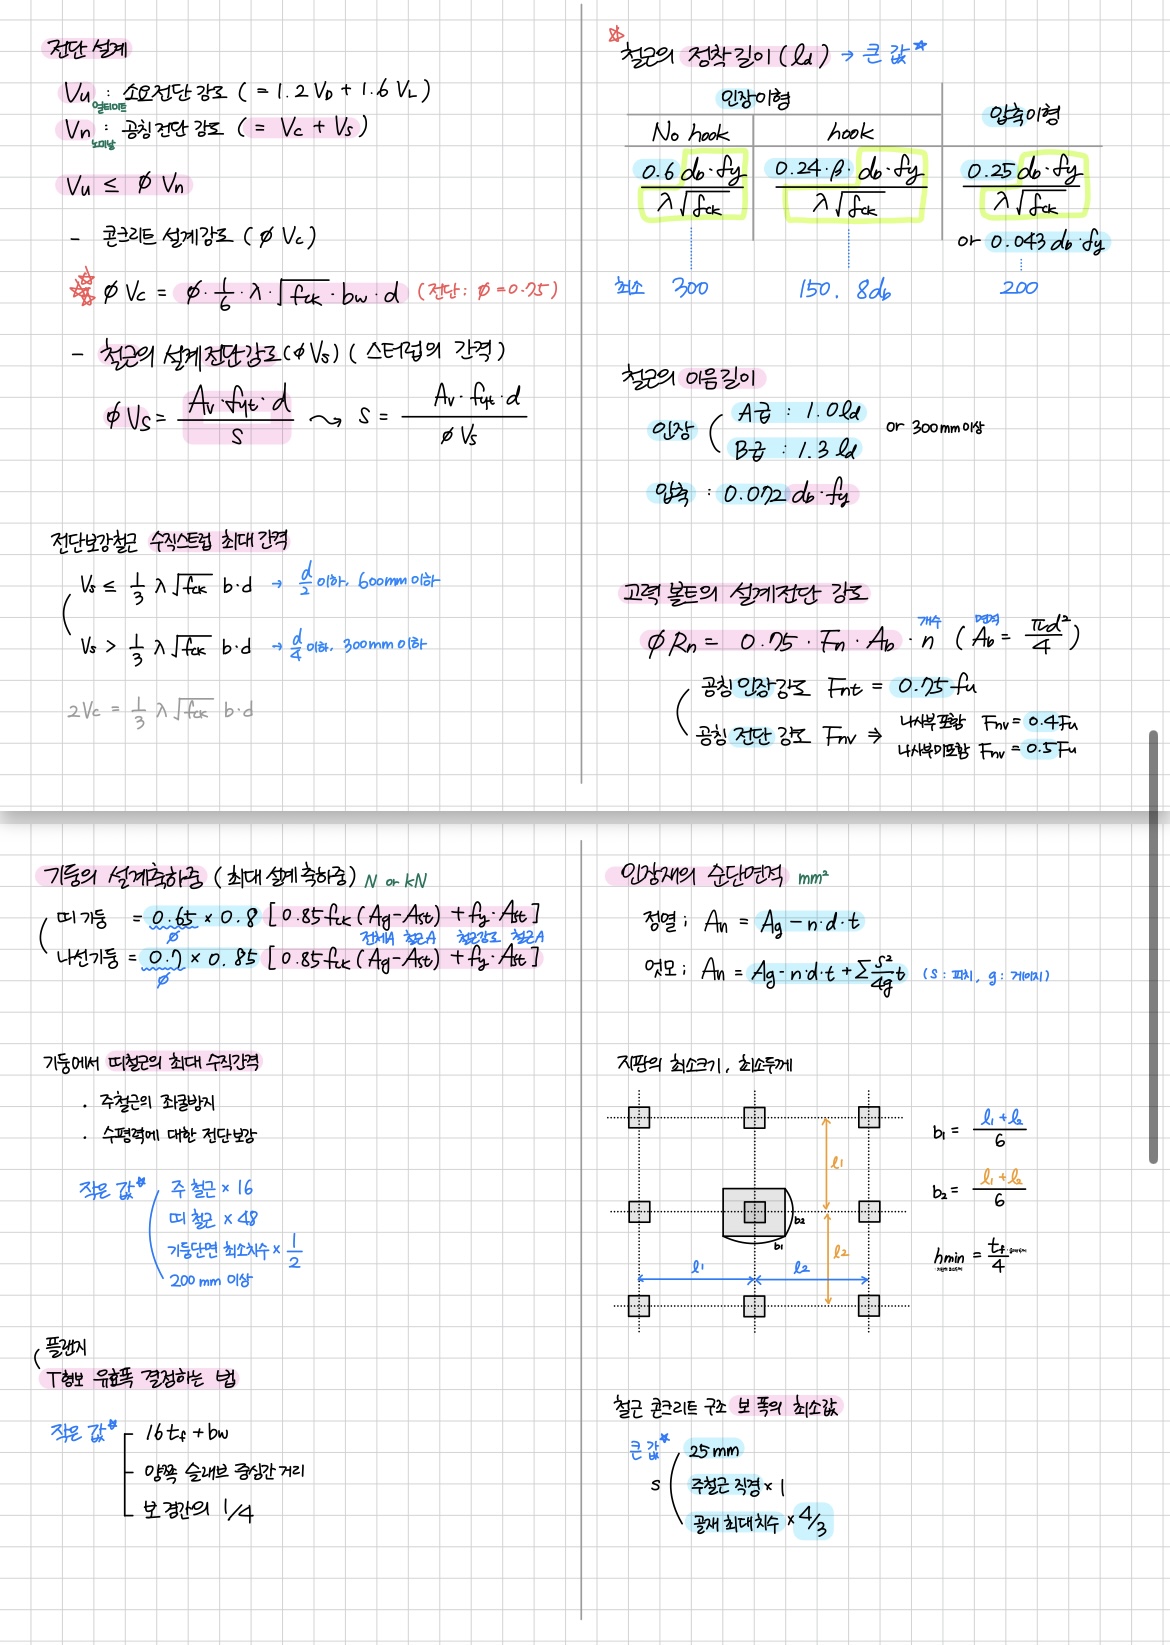 전단 설계
Vu : 소요전단 강도 ( = 1.2 VD + 1.6 VL )
얼티미트
Vn : 공칭전단 강도 ( = Vc + Vs )
노미날
Vu ≤ φ Vn
- 콘크리트 설계강도 ( φ Vc )
φ Vc = φ · 1/6 · λ · √fck · bw · d (전단 : φ = 0.75)
- 철근의 설계전단강도 (φ Vs) ( 스터럽의 간격 )
φ Vs = Av · fyt · d / s ⤳ s = Av · fyt · d / φ Vs
전단보강철근 수직스트럽 최대 간격
Vs ≤ 1/3 λ √fck b·d → d/2 이하, 600mm 이하
Vs > 1/3 λ √fck b·d → d/4 이하, 300mm 이하
2Vc = 1/3 λ √fck b·d
철근의 정착길이 ( ld ) → 큰 값
인장이형
압축이형
No hook
hook
0.6 db·fy / λ √fck
0.24·β·db·fy / λ √fck
0.25 db·fy / λ √fck
or 0.043 db·fy
최소 300
150. 8db
200
철근의 이음길이
인장
A급 : 1.0 ld
B급 : 1.3 ld
or 300mm 이상
압축 : 0.072 db·fy
고력볼트의 설계전단 강도
φRn = 0.75 · Fn · Ab · n ( Ab = πd²/4 )
개수
면적
공칭 인장강도 Fnt = 0.75 fu
공칭 전단 강도 Fnv ⇒
나사부 포함 Fnv = 0.4Fu
나사부미포함 Fnv = 0.5Fu
기둥의 설계축하중 ( 최대 설계 축하중 ) N or kN
띠 기둥 = 0.65 × 0.8 [ 0.85 fck ( Ag - Ast ) + fy · Ast ]
φ
전체A 철근A 철근강도 철근A
나선기둥 = 0.7 × 0.85 [ 0.85 fck ( Ag - Ast ) + fy · Ast ]
φ
기둥에서 띠철근의 최대 수직간격
· 주철근의 좌굴방지
· 수평력에 대한 전단보강
작은 값
주 철근 × 16
띠 철근 × 48
기둥단면 최소치수 × 1/2
200 mm 이상
플랜지
T형보 유효폭 결정하는 법
작은 값
16 tf + bw
양쪽 슬래브 중심간 거리
보 경간의 1/4
인장재의 순단면적 mm²
정열 ; An = Ag - n·d·t
엇모 ; An = Ag - n·d·t + Σ s²/4g t ( s : 피치, g : 게이지 )
지판의 최소크기, 최소두께
l1
b2
b1
l2
l1
l2
b1 = l1 + l2 / 6
b2 = l1 + l2 / 6
hmin = tf / 4
철근 콘크리트 구조 보 폭의 최솟값
큰 값
s
25 mm
주철근 직경 × 1
골재 최대치수 × 4/3